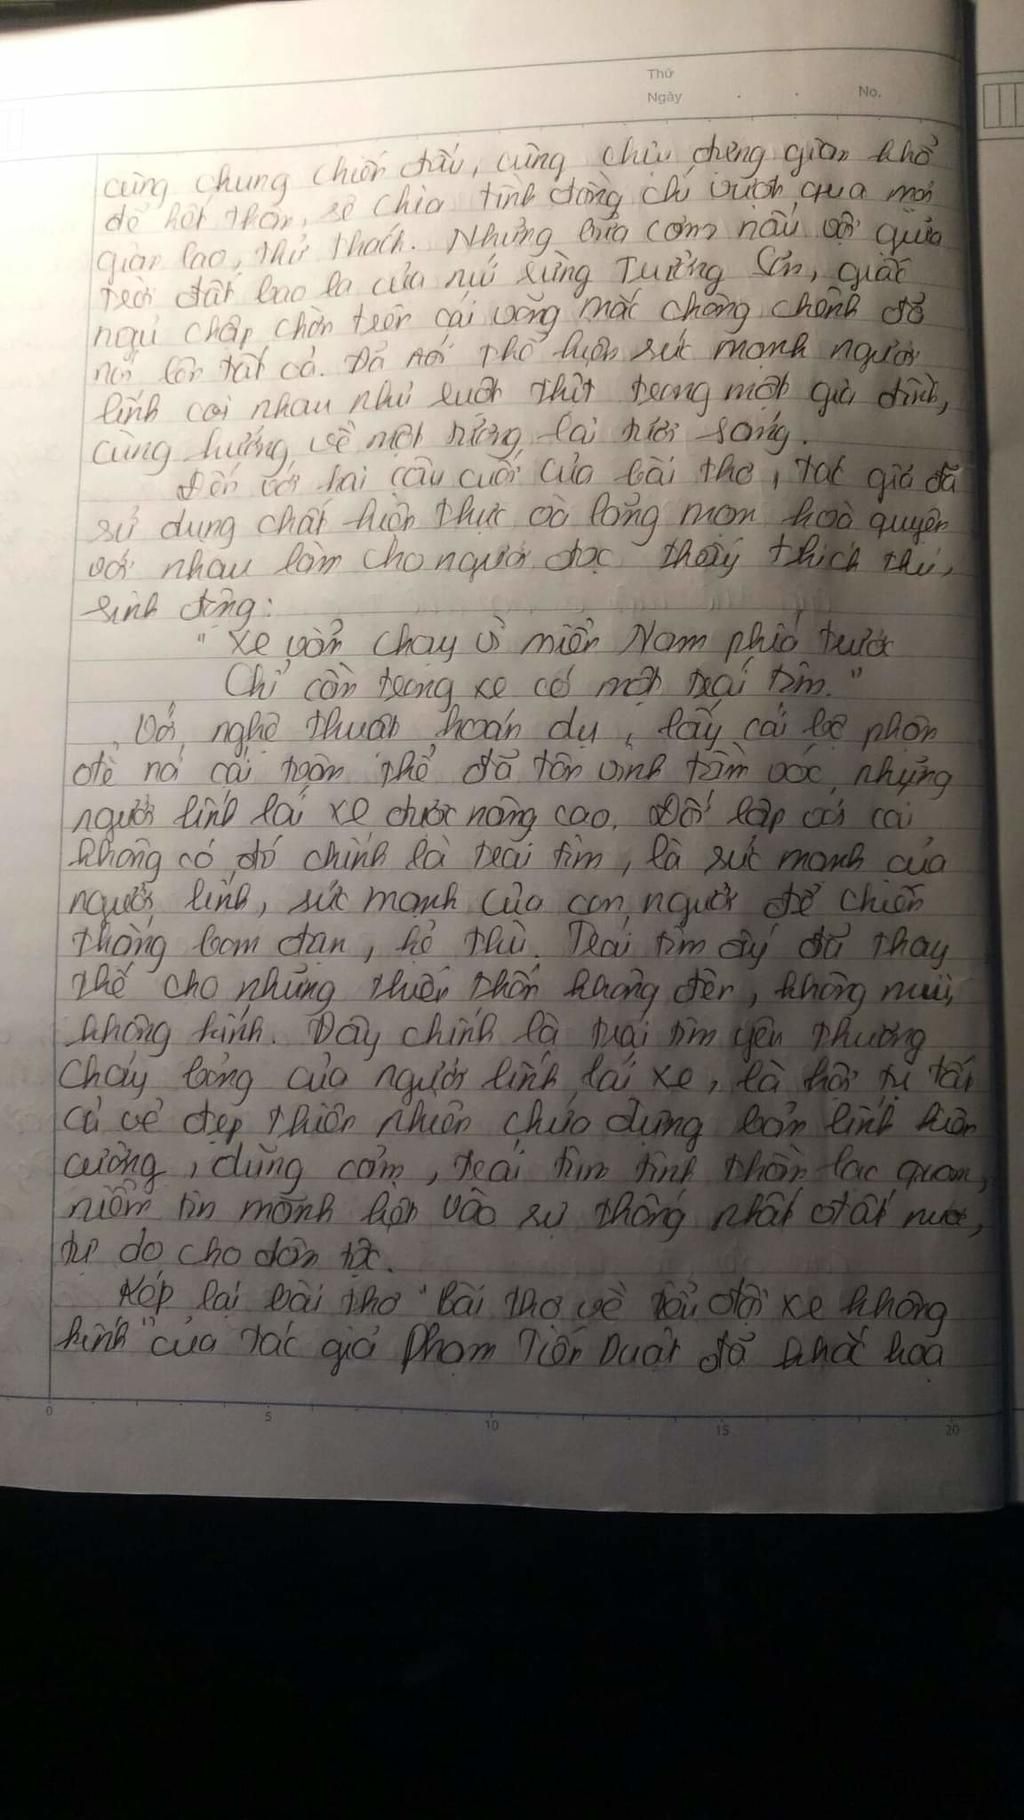 Thứ
Ngày . . No.
cùng chung chiến đấu, cùng chịu đựng gian khổ
để hết thân, sẻ chia tình đồng chí vượt qua mọi
gian lao, thử thách. Những bữa cơm nấu vội giữa
trời đất bao la của núi rừng Trường Sơn, giấc
ngủ chập chờn trên cái võng mắc chông chênh đã
nói lên tất cả. Đã nói thể hiện sức mạnh người
lính coi nhau như ruột thịt trong một gia đình,
cùng hướng về một tương lai tươi sáng.
Đến với hai câu cuối của bài thơ, tác giả đã
sử dụng chất hiện thực và lãng mạn hoà quyện
với nhau làm cho người đọc thấy thích thú,
sinh động:
" Xe vẫn chạy vì miền Nam phía trước
Chỉ cần trong xe có một trái tim."
Với nghệ thuật hoán dụ, lấy cái bộ phận
để nói cái toàn thể đã tôn vinh tầm vóc những
người lính lái xe được nâng cao. Đối lập với cái
không có đó chính là trái tim, là sức mạnh của
người lính, sức mạnh của con người để chiến
thắng bom đạn, kẻ thù. Trái tim ấy đã thay
thế cho những thiếu thốn không đèn, không mui,
không kính. Đây chính là trái tim yêu thương
cháy bỏng của người lính lái xe, là hội tụ tất
cả vẻ đẹp thiên nhiên chứa đựng bản lĩnh kiên
cường, dũng cảm, trái tim tinh thần lạc quan,
niềm tin mãnh liệt vào sự thống nhất đất nước,
tự do cho dân tộc.
Khép lại bài thơ "Bài thơ về tiểu đội xe không
kính" của tác giả Phạm Tiến Duật đã khắc hoạ
0 5 10 15 20